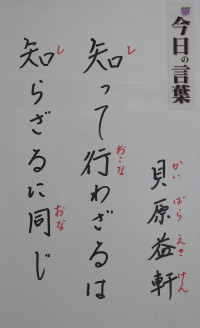 今日の言葉
知って行わざるは
知らざるに同じ
貝原益軒
し
おこな
し
おな
かい ばら えき けん